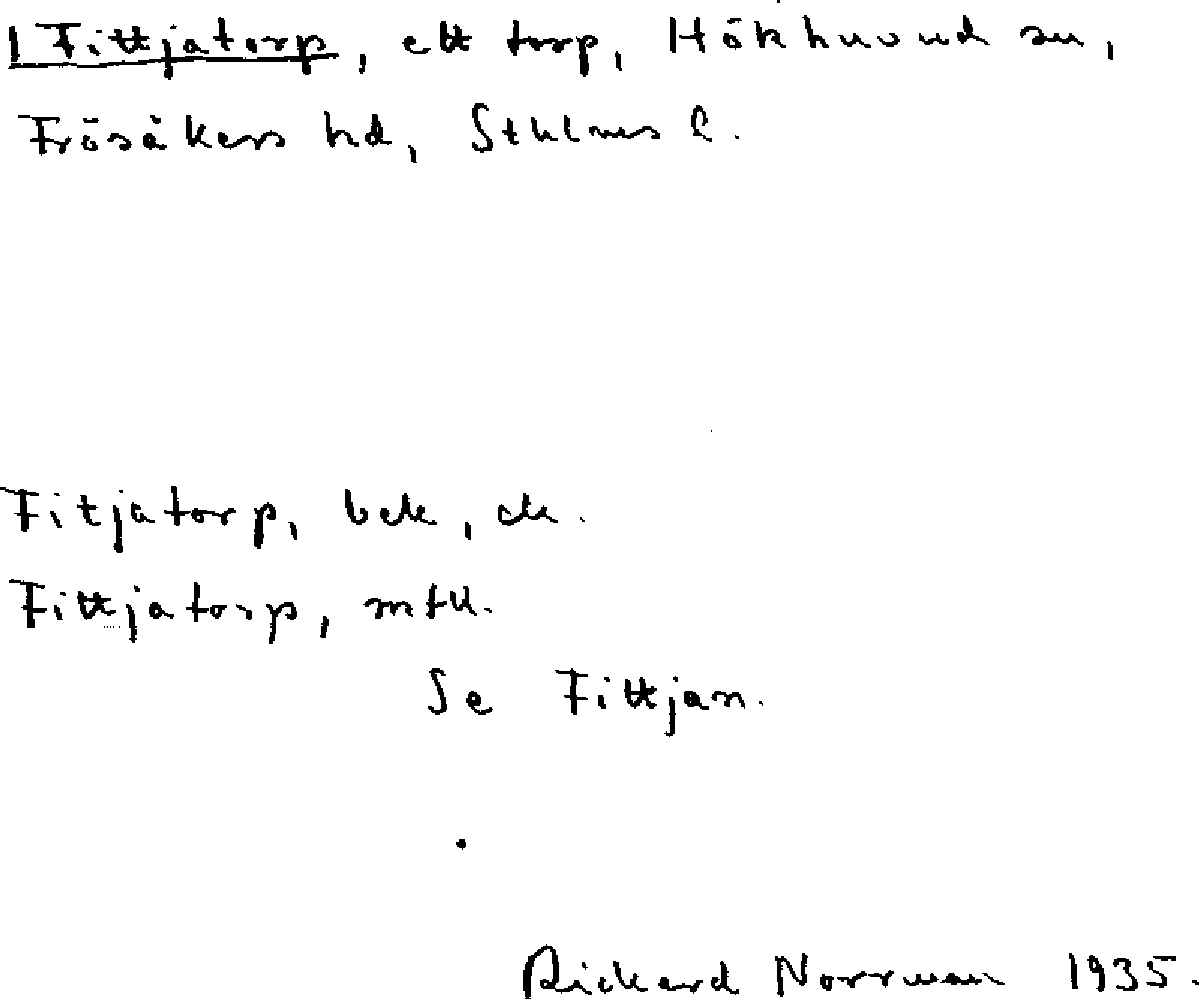 Fittjatorp, ett torp, Hökhuvud sn,
Frösåkers hd, Sthlms l.
Fitjatorp, bek, ek.
Fittjatorp, mtll.
Se Fittjan.
Rickard Norrman 1935.